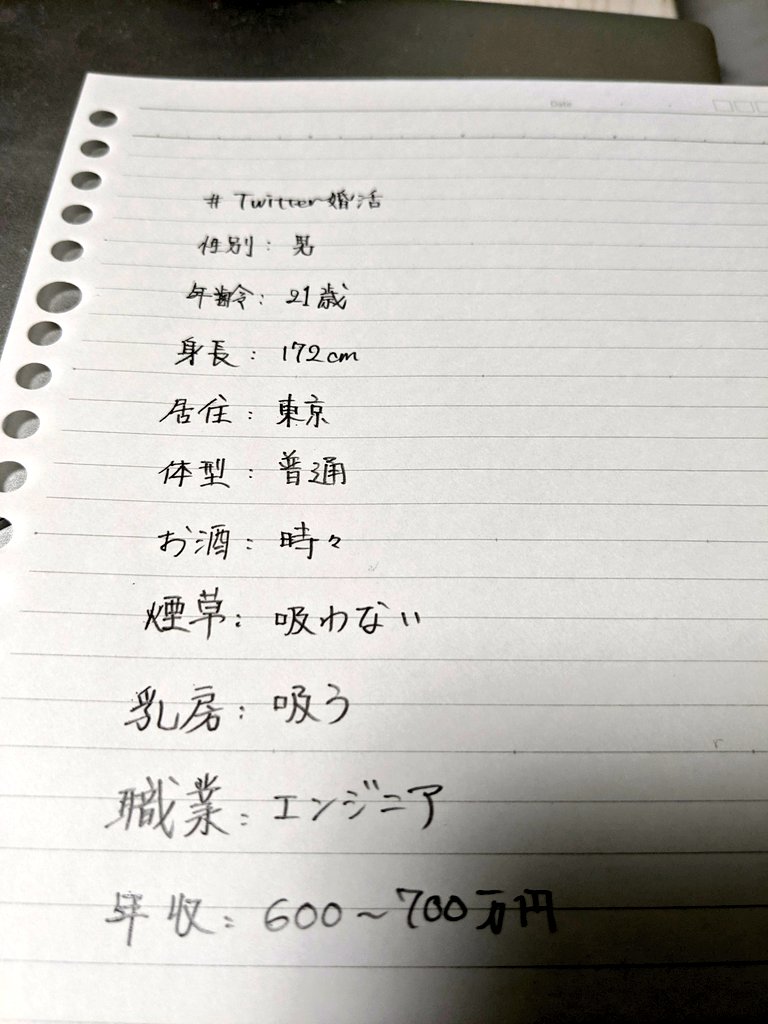 Date
# Twitter婚活
性別: 男
年齢: 21歳
身長: 172cm
居住: 東京
体型: 普通
お酒: 時々
煙草: 吸わない
乳房: 吸う
職業: エンジニア
年収: 600~700万円